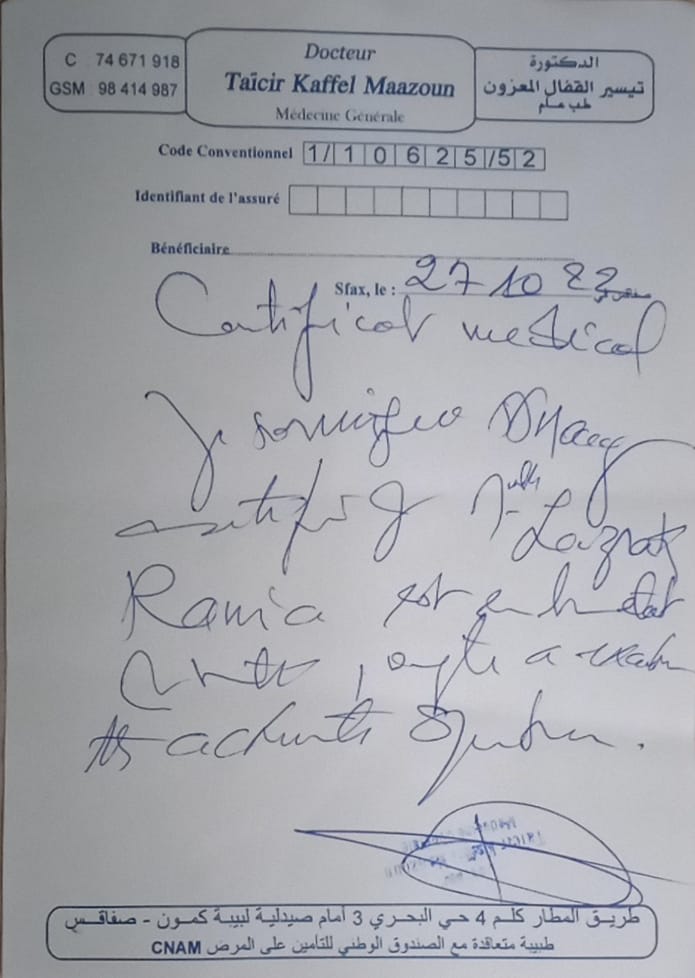 C 74 671 918
GSM 98 414 987
Docteur
Taïcir Kaffel Maazoun
Médecine Générale
الدكتورة
تيسير القفال المعزون
طب عام
Code Conventionnel 1/10625/52
Identifiant de l'assuré
Bénéficiaire
Sfax, le : 27 10 22 صفاقس في
Certificat médical
Je soussigné
certifie Lazrak
Rania est en bon état
santé, apte à exercer
activités
طريق المطار كلم 4 حي البحري 3 أمام صيدلية لبيبة كمون - صفاقس
طبيبة متعاقدة مع الصندوق الوطني للتأمين على المرض CNAM